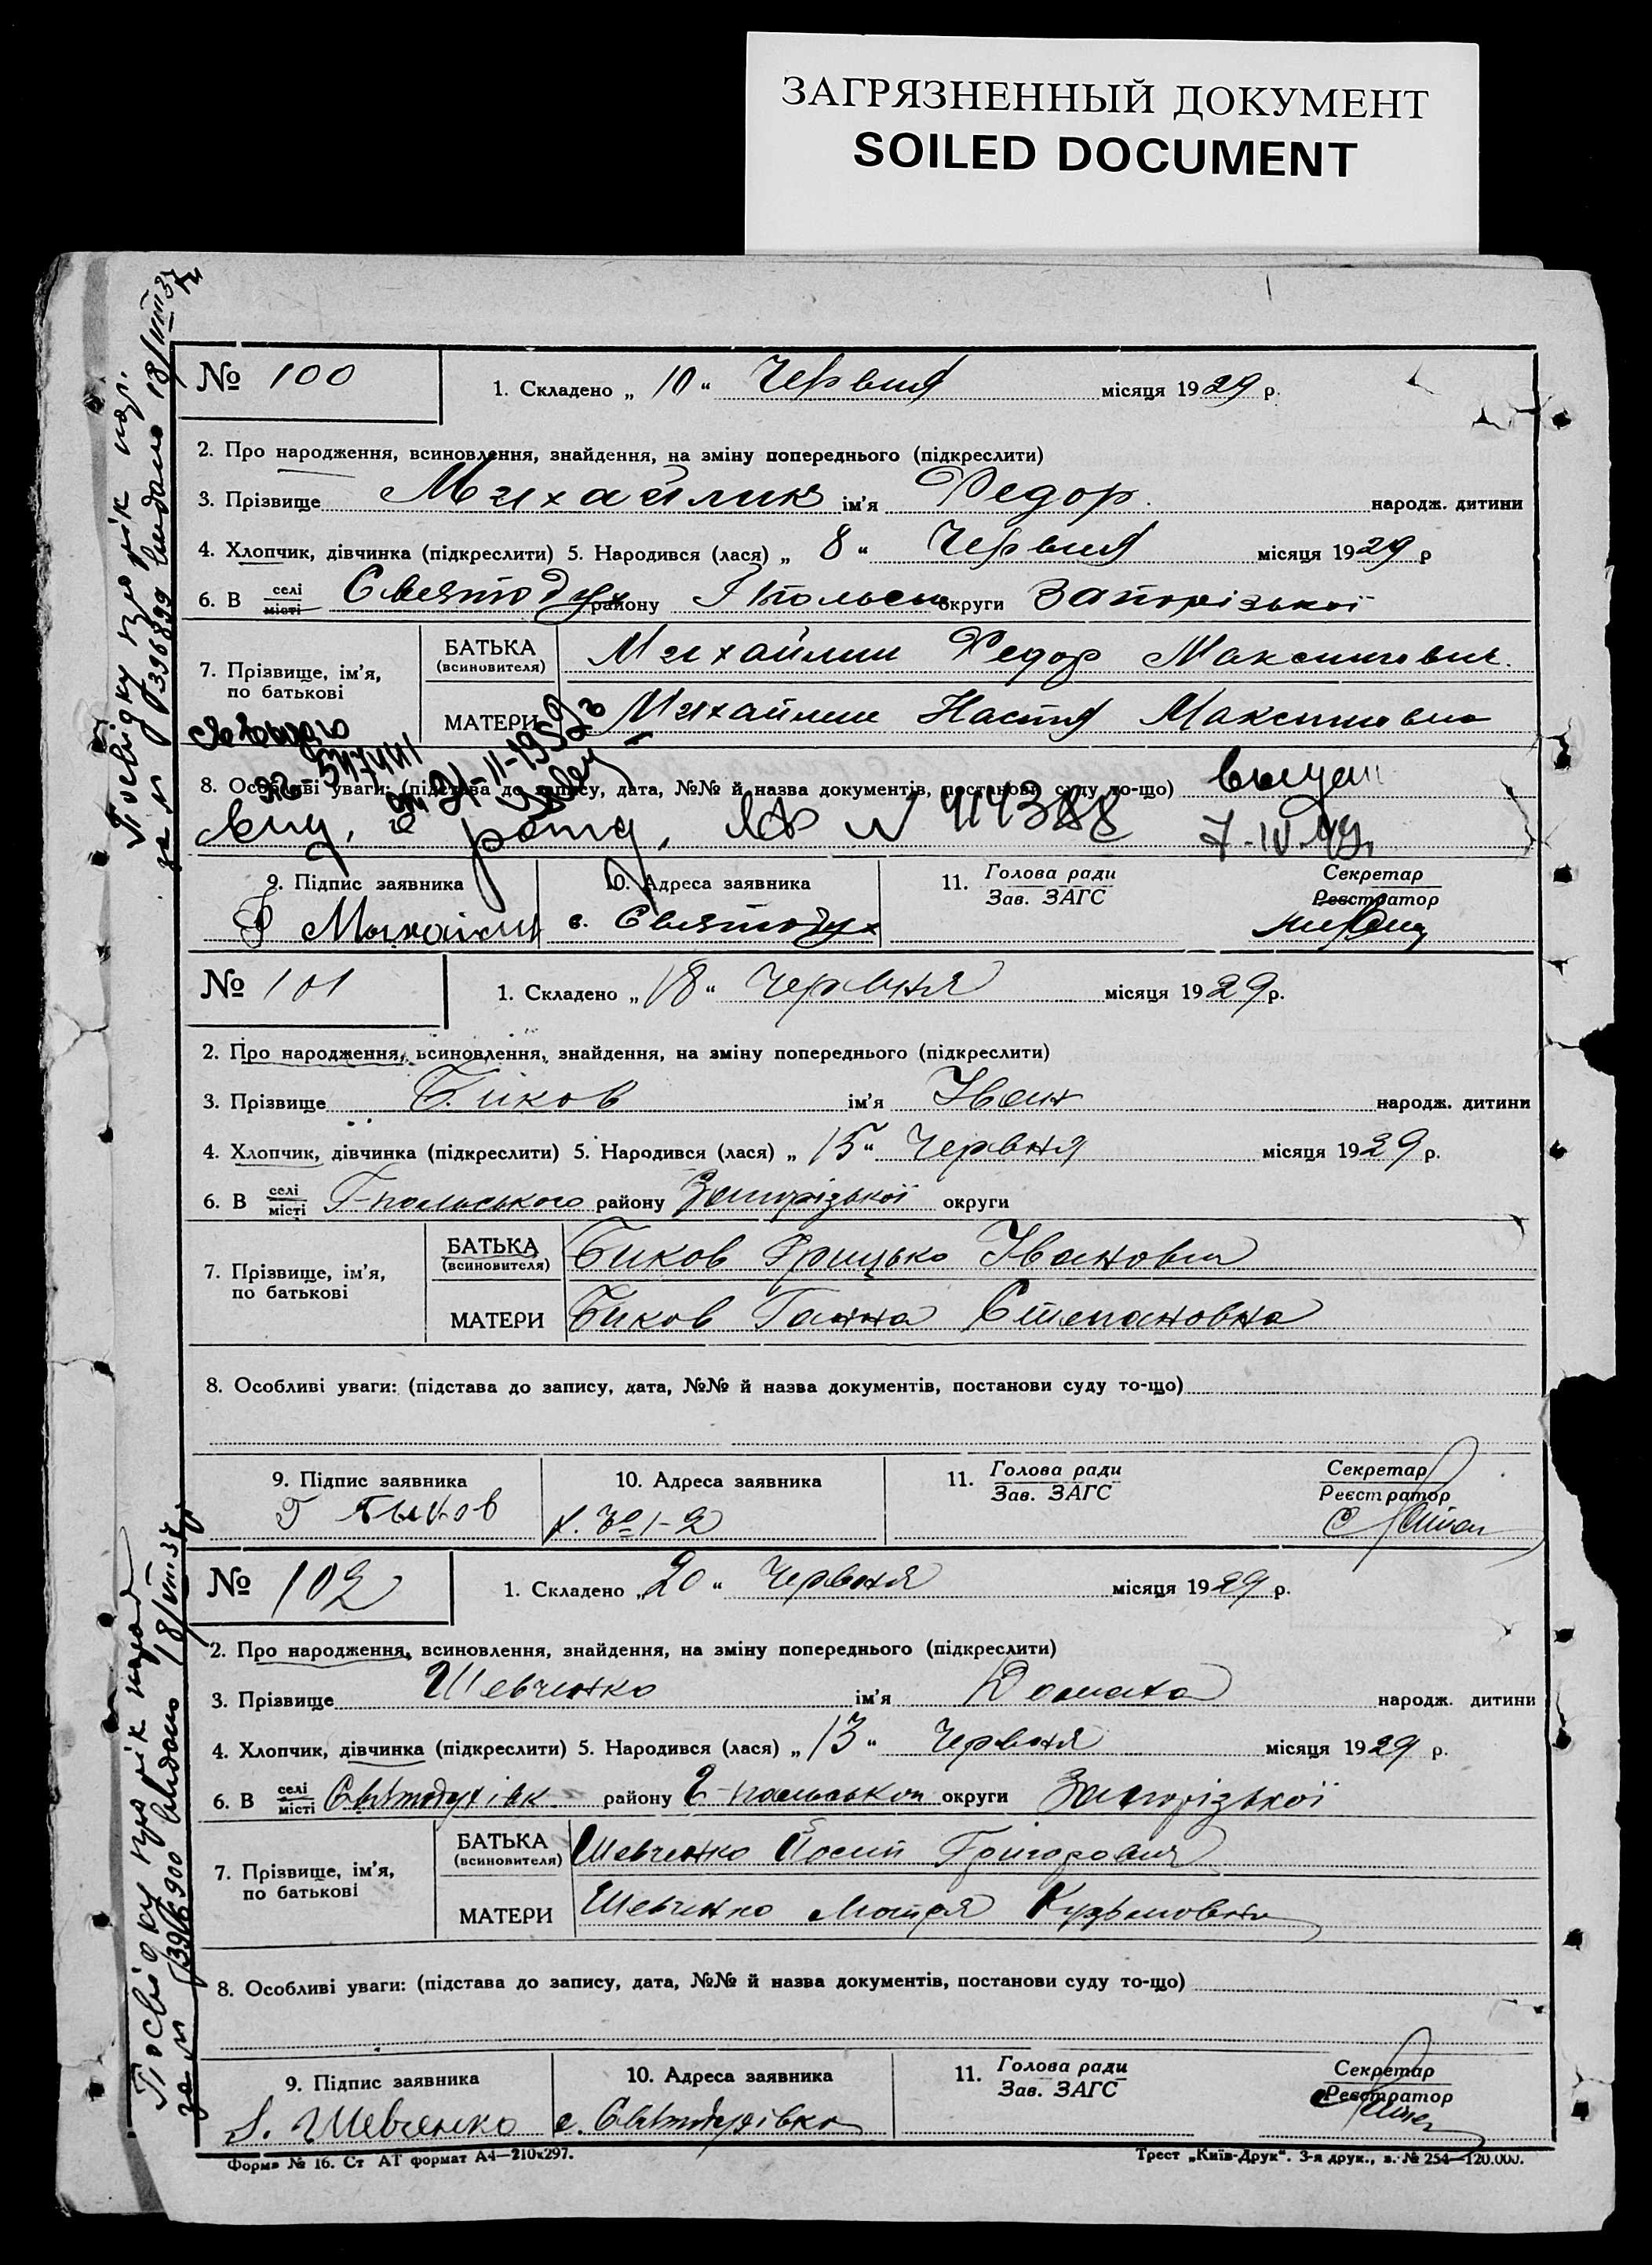 ЗАГРЯЗНЕННЫЙ ДОКУМЕНТ
SOILED DOCUMENT
№ 100
1. Складено „ 10 “ Червня місяця 1929 р.
2. Про народження, всиновлення, знайдення, на зміну попереднього (підкреслити)
3. Прізвище Михайлик ім'я Федор народж. дитини
4. Хлопчик, дівчинка (підкреслити) 5. Народився (лася) „ 8 “ Червня місяця 1929 р
6. В селі місті Святодух району округи Запорізької
7. Прізвище, ім'я, по батькові
БАТЬКА (всиновителя) Михайлик Федор Максимович
МАТЕРИ Михайлик Настя Максимовна
8. Особливі уваги: (підстава до запису, дата, №№ й назва документів, постанови суду то-що)
9. Підпис заявника
10. Адреса заявника
11. Голова ради Зав. ЗАГС
Секретар Реєстратор
с. Святодух
№ 101
1. Складено „ 18 “ Червня місяця 1929 р.
2. Про народження, всиновлення, знайдення, на зміну попереднього (підкреслити)
3. Прізвище Биков ім'я Іван народж. дитини
4. Хлопчик, дівчинка (підкреслити) 5. Народився (лася) „ 15 “ Червня місяця 1929 р.
6. В селі місті Г-польського району Запорізької округи
7. Прізвище, ім'я, по батькові
БАТЬКА (всиновителя) Биков Грицько Іванович
МАТЕРИ Биков Ганна Степановна
8. Особливі уваги: (підстава до запису, дата, №№ й назва документів, постанови суду то-що)
9. Підпис заявника
10. Адреса заявника
11. Голова ради Зав. ЗАГС
Секретар Реєстратор
Г Быков
№ 102
1. Складено „ 20 “ Червня місяця 1929 р.
2. Про народження, всиновлення, знайдення, на зміну попереднього (підкреслити)
3. Прізвище Шевченко ім'я Домаха народж. дитини
4. Хлопчик, дівчинка (підкреслити) 5. Народився (лася) „ 13 “ Червня місяця 1929 р.
6. В селі місті Святодухівк району Г-польськой округи Запорізької
7. Прізвище, ім'я, по батькові
БАТЬКА (всиновителя) Шевченко Йосип Григорович
МАТЕРИ Шевченко Мотря Кузьмовна
8. Особливі уваги: (підстава до запису, дата, №№ й назва документів, постанови суду то-що)
9. Підпис заявника
10. Адреса заявника
11. Голова ради Зав. ЗАГС
Секретар Реєстратор
Шевченко
с. Святодухівка
Форма № 16. Ст АТ формат А4—210х297.
Трест „Київ-Друк“. 3-я друк., з. № 254—120.000.